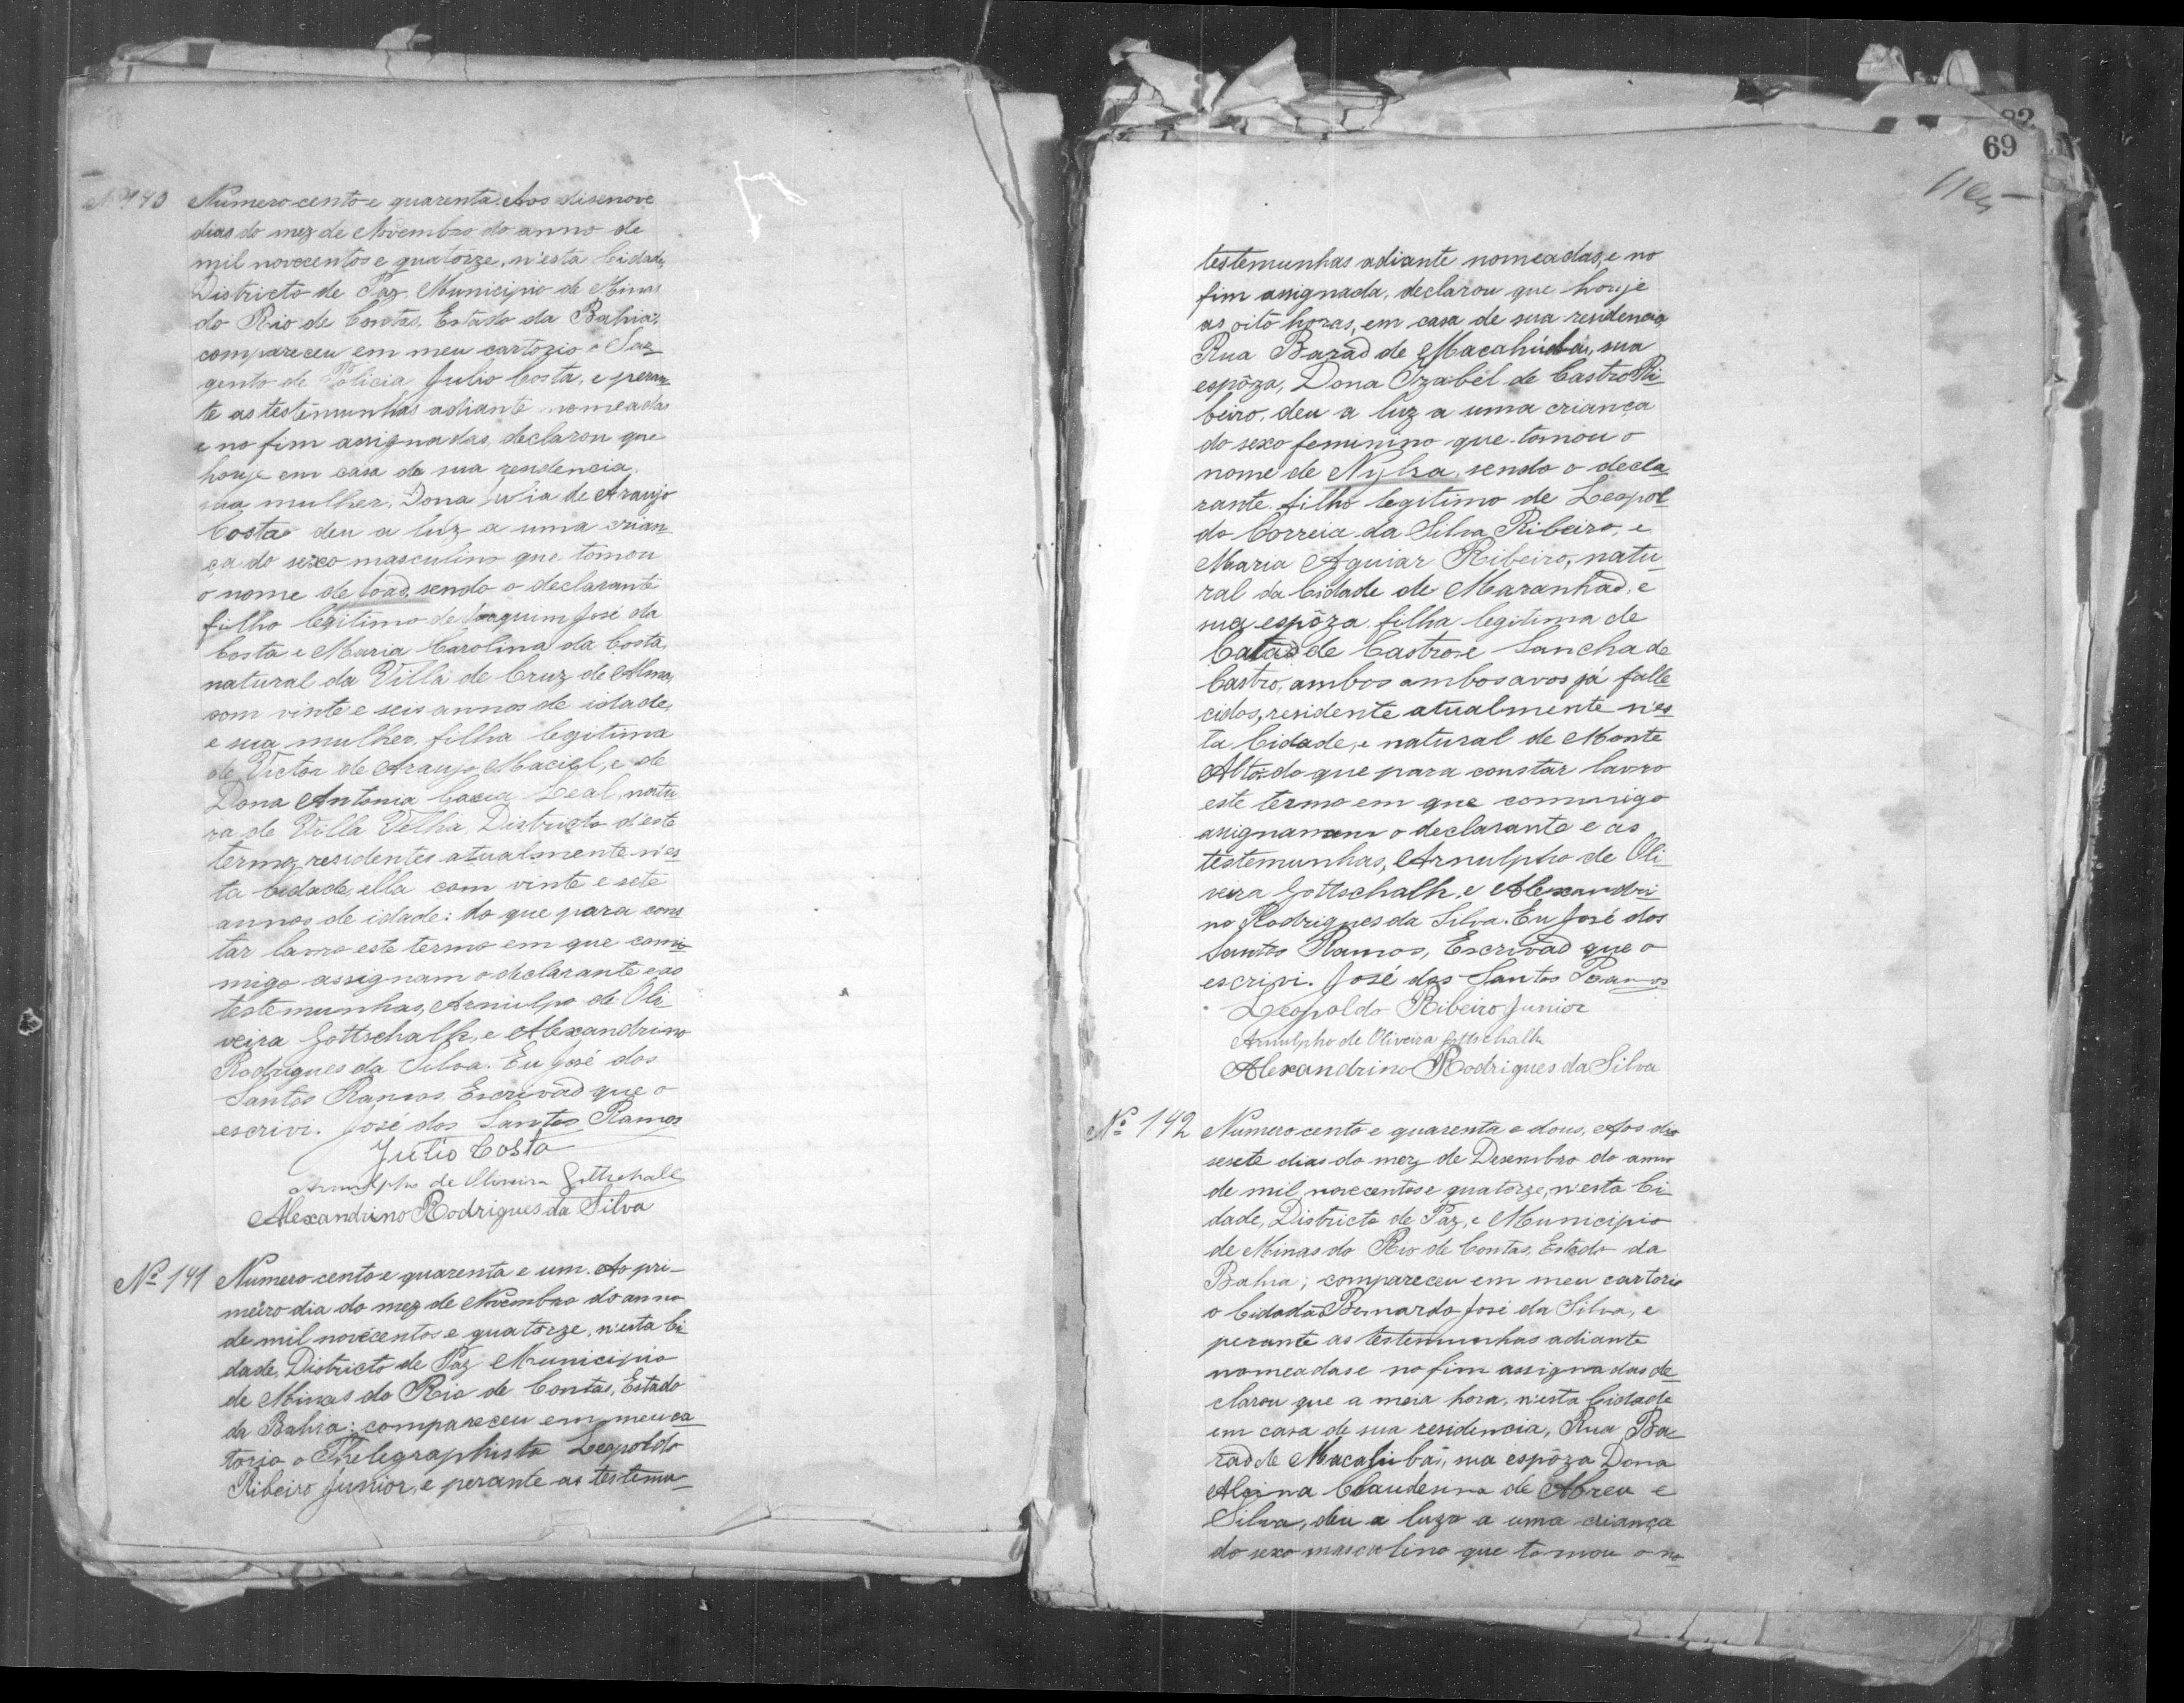 Nº 140 Numero cento e quarenta. Aos disenove
dias do mez de Novembro do anno de
mil novecentos e quatorze, n'esta Cidade,
Districto de Paz, Municipio de Minas
do Rio de Contas, Estado da Bahia;
compareceu em meu cartorio o Sar
gento de Policia Julio Costa, e peran
te as testemunhas adiante nomeadas
e no fim assignadas, declarou que
houje em casa de sua rendencia,
sua mulher, Dona Julia de Araujo
Costa deu a luz a uma crian
ça do sexo masculino que tomou
o nome de João, sendo o declarante
filho legitimo de Joaquim José da
Costa e Maria Carolina da Costa,
natural da Villa de Cruz de Alma,
com vinte e seis annos de idade,
e sua mulher, filha legitima
de Victor de Araujo Maciel, e de
Dona Antonia Leal, natu
ra de Villa Velha, Districto d'este
termo, residentes atualmente n'es
ta Cidade, ella com vinte e sete
annos de idade: do que para cons
tar lavro este termo em que com
migo assignam o declarante e as
testemunhas, Arnulpo de Oli
veira Gottschalk, e Alexandrino
Rodrigues da Silva. Eu José dos
Santos Ramos, Escrivão que o
escrivi. José dos Santos Ramos
Julio Costa
Arnulpho de Oliveira Gottschalk
Alexandrino Rodrigues da Silva
Nº 141 Numero cento e quarenta e um. Ao pri-
meiro dia do mez de Novembro do anno
de mil novecentos e quatorze, n'esta Ci
dade, Districto de Paz Municipio
de Minas do Rio de Contas, Estado
da Bahia: compareceu em meu ca
torio o Thelegraphista Leopoldo
Ribeiro Junior, e perante as testemu-
69
testemunhas adiante nomeadas, e no
fim assignada, declarou que houje
as oito horas, em casa de sua residencia,
Rua Barão de Macahúbas, sua
espôza, Dona Izabel de Castro Ri
beiro, deu a luz a uma criança
do sexo feminino que tomou o
nome de Nylza, sendo o decla
rante filho legitimo de Leopol
do Correia da Silva Ribeiro, e
Maria Aguiar Ribeiro, natu
ral da Cidade de Maranhão, e
sua espôza filha legitima de
Catão de Castro e Sancha de
Castro, ambos ambos avos já falle
cidos, residente atualmente n'es
ta Cidade, e natural de Monte
Alto: do que para constar lavro
este termo em que commigo
assignaram o declarante e as
testemunhas, Arnulpho de Oli
veira Gottschalk, e Alexandri
no Rodrigues da Silva. Eu José dos
Santos Ramos, Escrivão que o
escrivi. José dos Santos Ramos
Leopoldo Ribeiro Junior
Arnulpho de Oliveira Gottschalk
Alexandrino Rodrigues da Silva
Nº 142 Numero cento e quarenta e dous, Aos dis
sesete dias do mez de Desembro do anno
de mil novecentos e quatorze, n'esta Ci
dade, Districto de Paz, e Municipio
de Minas do Rio de Contas, Estado da
Bahia; compareceu em meu cartorio
o Cidadão Bernardo José da Silva, e
perante as testemunhas adiante
nomeadas e no fim assignadas de
clarou que a meia hora, n'esta Cidade
em casa de sua residencia, Rua Ba
rão de Macahúbas, sua espôza Dona
Alcina Claudesina de Abreu e
Silva, deu a luza a uma criança
do sexo masculino que tomou o no